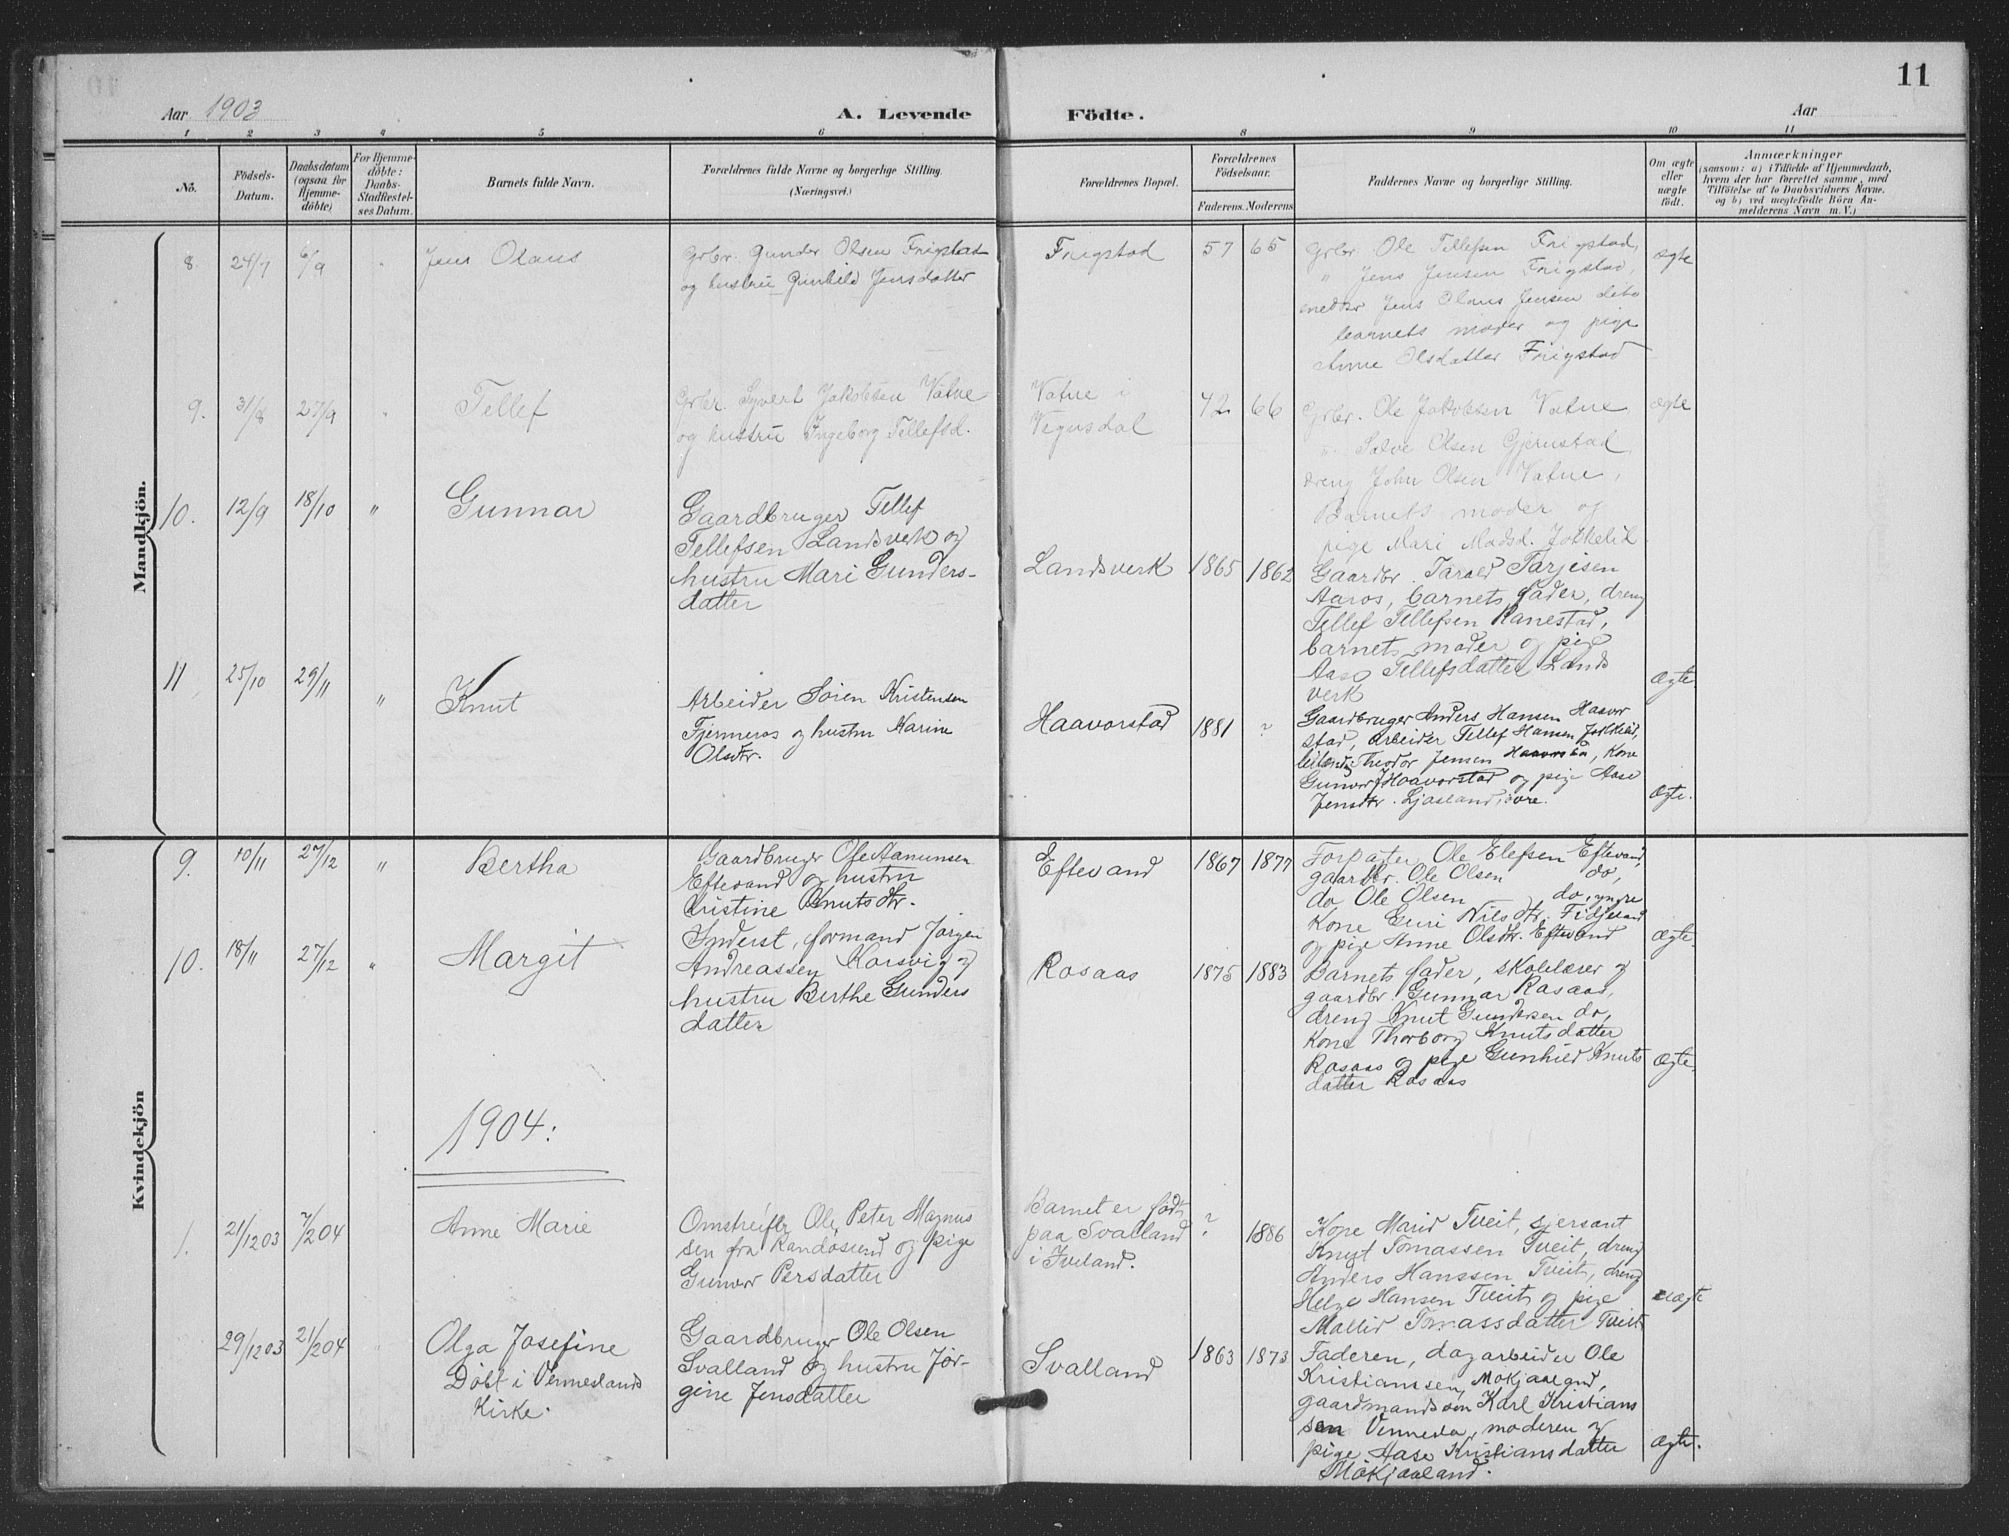 11
Aar 1903
A. Levende
Födte.
Aar
1 2 3 4 5 6 8 9 10 11
No.
Födsels-
Datum.
Daabsdatum
(ogsaa for
Hjemme-
döbte)
For Hjemme-
döbte:
Daabs-
Stadfæstel-
ses Datum.
Barnets fulde Navn.
Forældrenes fulde Navne og borgerlige Stilling.
(Næringsvei.)
Forældrenes Bopæl.
Forældrenes
Födselsaar.
Faderens. Moderens
Faddernes Navne og borgerlige Stilling.
Om ægte
eller
uægte
födt.
Anmærkninger
(saasom: a) i Tilfælde af Hjemmedaab,
hvem der har forrettet samme, med
Tilföielse af to Daabsvidners Navne.
og b) ved uægtefödte Börn An-
melderens Navn m. V.)
Mandkjön.
8. 24/7 6/9 "
Jens Olaus
Grbr. Gunder Olsen Frigstad
og hustru Gunhild Jensdatter
Frigstad
57 65
Grbr Ole Tellefsen Frigstad,
" Jens Jensen Frigstad,
Jens Olaus Jensen dito
barnets moder og pige
Anne Olsdatter Frigstad
ægte
9. 31/8 27/9 "
Tellef
Grbr. Syvert Jakobsen Vatne
og hustru Ingeborg Tellefsd.
Vatne i
Vegusdal
72 66
Grbr. Ole Jakobsen Vatne
". Salve Olsen Gjerustad
dreng John Olsen Vatne,
Barnets moder og
pige Mari Madsd. Jokkelid
ægte
10. 12/9 18/10 "
Gunnar
Gaardbruger Tellef
Tellefsen Landsverk og
hustru Mari Gunders-
datter
Landsverk
1865 1862
Gaardbr. Tarald Tarjesen
Aaros, barnets fader, dreng
Tellef Tellefsen Ranestad,
barnets moder og pige
Aase Tellefsdatter Lands
verk
Ægte
11 25/10 29/11 "
Knut
Arbeider Sören Kristensen
Fjermeros og hustru Karine
Olsdtr.
Haavorstad
1881 ?
Gaardbruger Anders Hansen Haavor
stad, arbeider Tellef Hansen
Theodor Jensen Haavorstad, Kone
Gunvor J Haavorstad og pige Aase
Jensdtr. Ljosland, övre.
Ægte.
Kvindekjön
9. 10/11 27/12 "
Bertha
Gaardbruger Ole Aanunsen
Eftevand og hustru
Kristine Knutsdtr.
Eftevand
1867 1877
Forpagter Ole Elefsen Eftevand,
gaardbr. Ole Olsen do,
do Ole Olsen do, yngre
Kone Guri Nilsdtr. Fidjeland
og pige Anne Olsdtr. Eftevand
Ægte.
10. 18/11 27/12 "
Margit
Inderst, formand Jörgen
Andreassen Korsvig og
hustru Berthe Gunders
datter
Rosaas
1875 1883
Barnets fader, skolelærer og
gaardbr. Gunnar Rosaas,
dreng Knut Gundersen do,
Kone Thorborg Knutsdatter
Rosaas og pige Gunhild Knuts
datter Rosaas
Ægte.
1904:
1. 21/12 03 7/2 04
Anne Marie
Omstreifer Ole Peter Magnus
sen fra Randösund og pige
Gunvor Persdatter
Barnet er födt
paa Svalland
i Iveland.
? 1886
Kone Marid Tveit, sjersant
Knut Tomassen Tveit, dreng
Anders Hanssen Tveit, dreng
Helge Hansen Tveit og pige
Mallid Tomassdatter Tveit
uægte
29/12 03 21/2 04 "
Olga Josefine
Döbt i Venneslands
Kirke.
Gaardbruger Ole Olsen
Svalland og hustru Jör-
gine Jensdatter
Svalland
1863 1873
Faderen, dagarbeider Ole
Kristiamsen, Mokjaaland,
gaardmandssön Karl Kristians
sen Vennesla, moderen og
pige Aase Kristiansdatter
Mokjaaland.
Ægte.